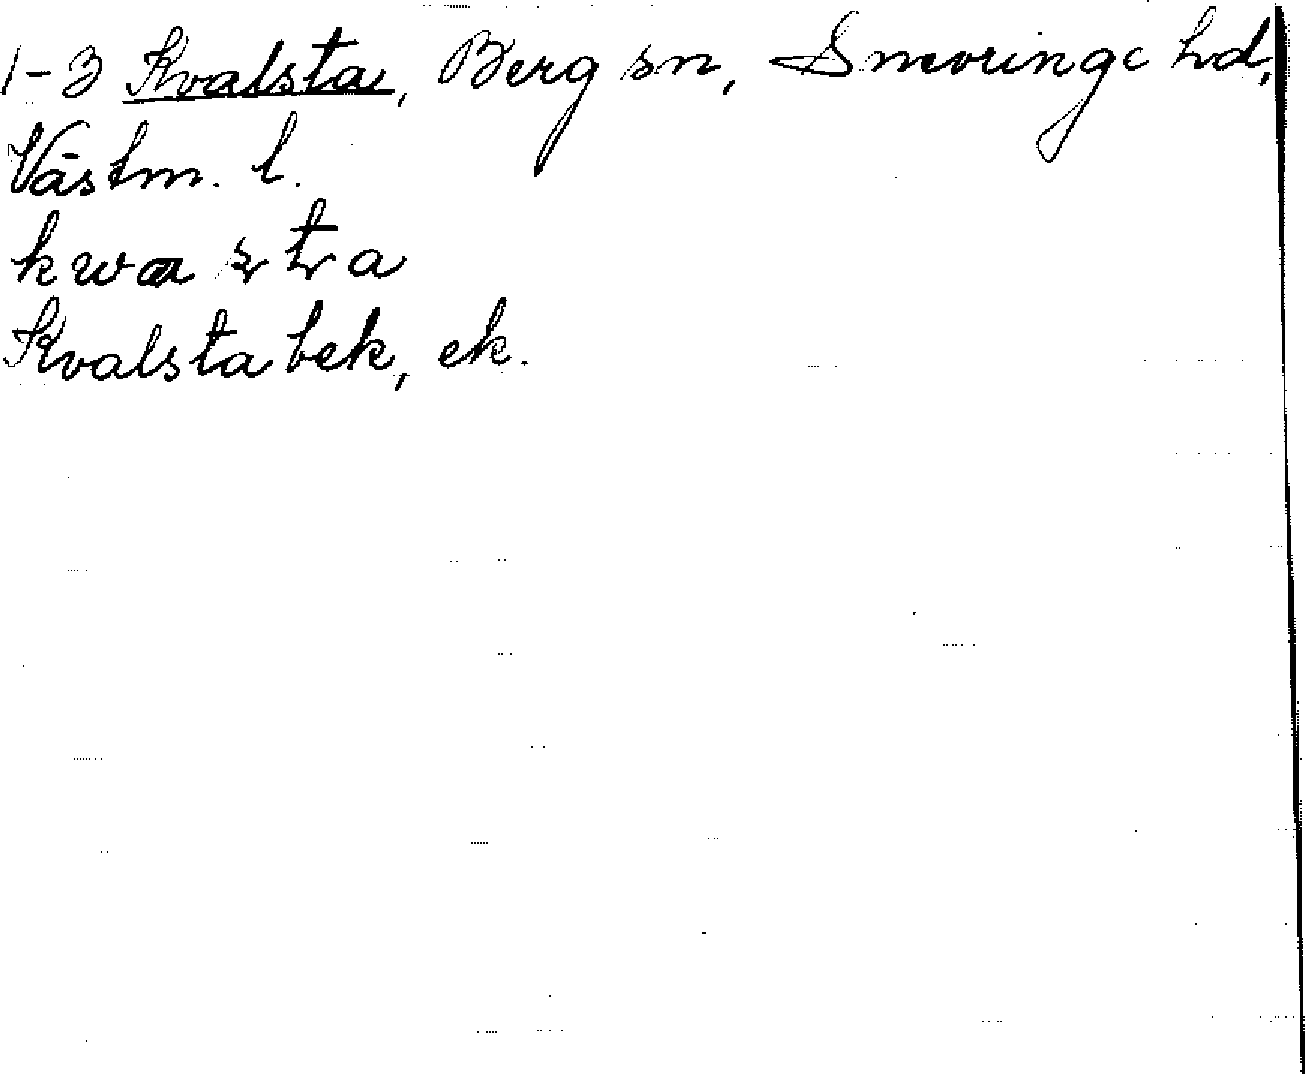 1-3 Kvalsta, Berg sn, Snevringe hd,
Västm. l.
Kvalsta bek, ek.